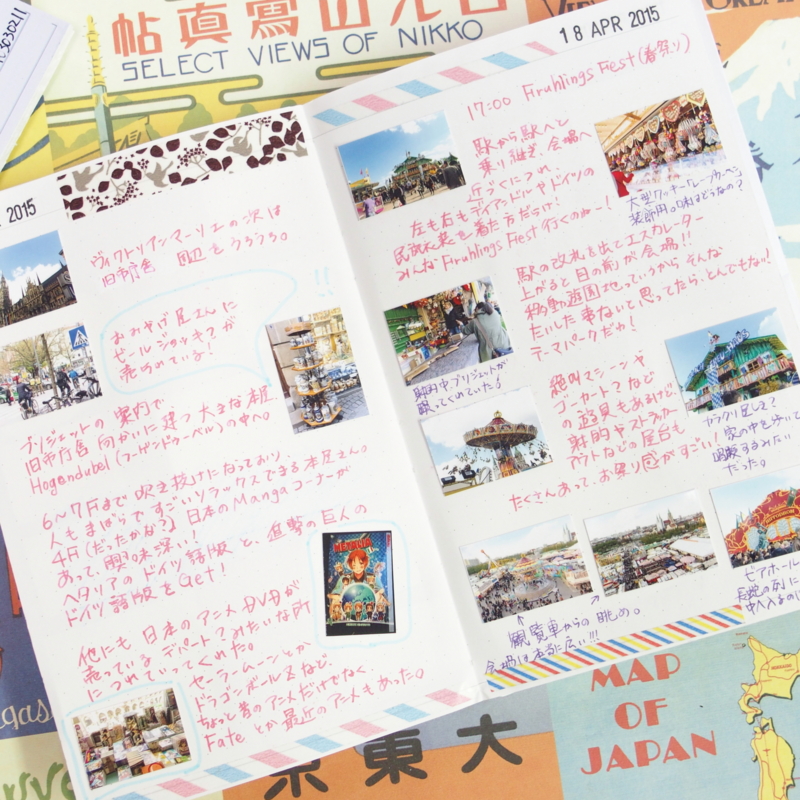 帖真寫山光日
SELECT VIEWS OF NIKKO
2015
ヴィクトリアンマーリエの次は
旧市庁舎 周辺をうろうろ。
おみやげ屋さんに
ビールジョッキ?が
売られている!
!!
ブリジェットの案内で
旧市庁舎向かいに建つ大きな本屋
Hugendubel(フーゲンドゥーベル)の中へ。
6〜7Fまで吹き抜けになっており、
人もまばらですごいリラックスできる本屋さん。
4F(だったかな?)日本のMangaコーナーが
あって、興味深い!
ヘタリアのドイツ語版と、進撃の巨人の
ドイツ語版をGet!
他にも日本のアニメDVDが
売っているデパート?みたいな所
につれていってくれた。
セーラームーンとか
ドラゴンボールZなど、
ちょっと昔のアニメだけでなく
Fateとか最近のアニメもあった。
18 APR 2015
17:00 Fruhlings Fest(春祭り)
駅から駅へと
乗り継ぎ、会場へ
近づくにつれ、
左も右もディアンドルやドイツの
民族衣装を着た方だらけ!
みんなFruhlings Fest行くのかー!
大型クッキー「レープクーヘン」
装飾用。味はどうなの?
駅の改札を出てエスカレーター
上がると目の前が会場!!
移動遊園地っていうからそんな
たいした事ないと思ってたら、とんでもない!
テーマパークだわ!
射的中。ブリジェットが
撮ってくれていた!
絶叫マシーンや
ゴーカート?など
の遊具もあれば
射的やストラック
アウトなどの屋台も
たくさんあって、お祭り感がすごい!
カラクリ屋しき?
家の中を歩いて
体験するみたい
だった。
観覧車からの眺め。
会場は本当に広い!!!
ビアホール
長蛇の列に
中へ入るのに
MAP
OF
JAPAN
京東大